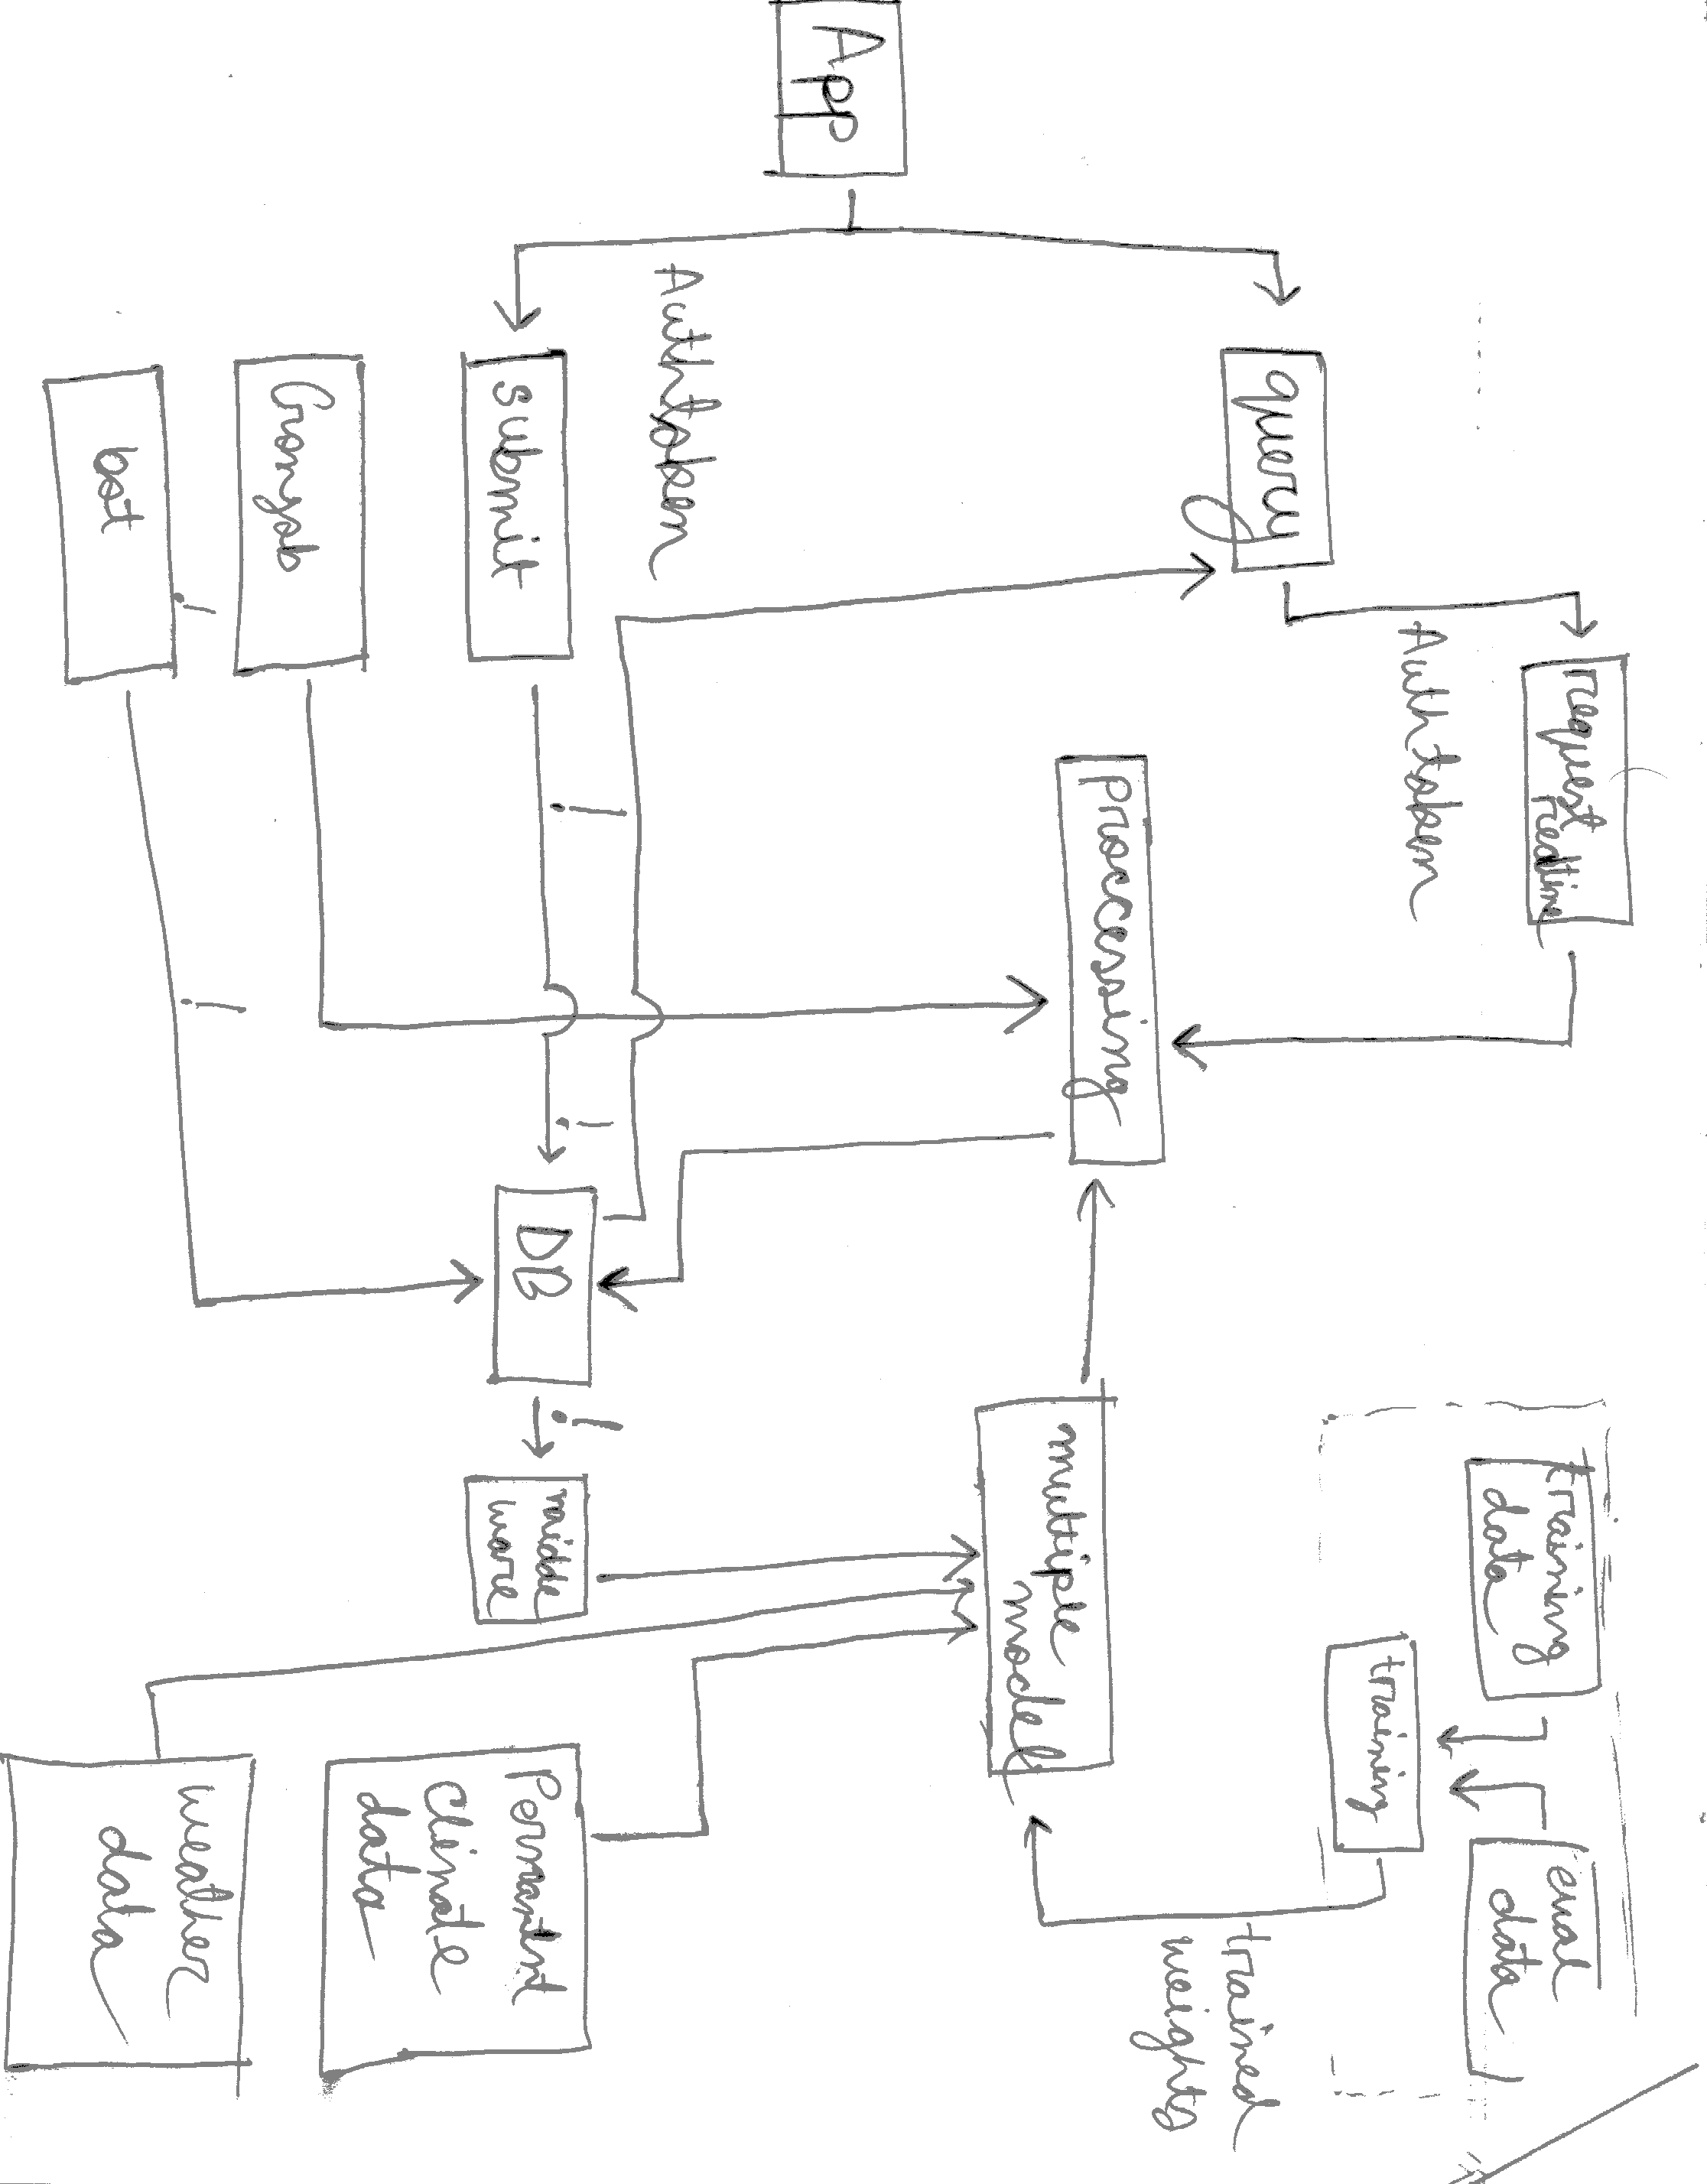 request
realtime
training
data
eval
data
Authtoken
training
query
trained
weights
proccessing
multiple
model
App
Authtoken
!
!
!
submit
DB
midde
ware
Permantnt
Climate
data
Cronjob
!
!
bot
weather
data